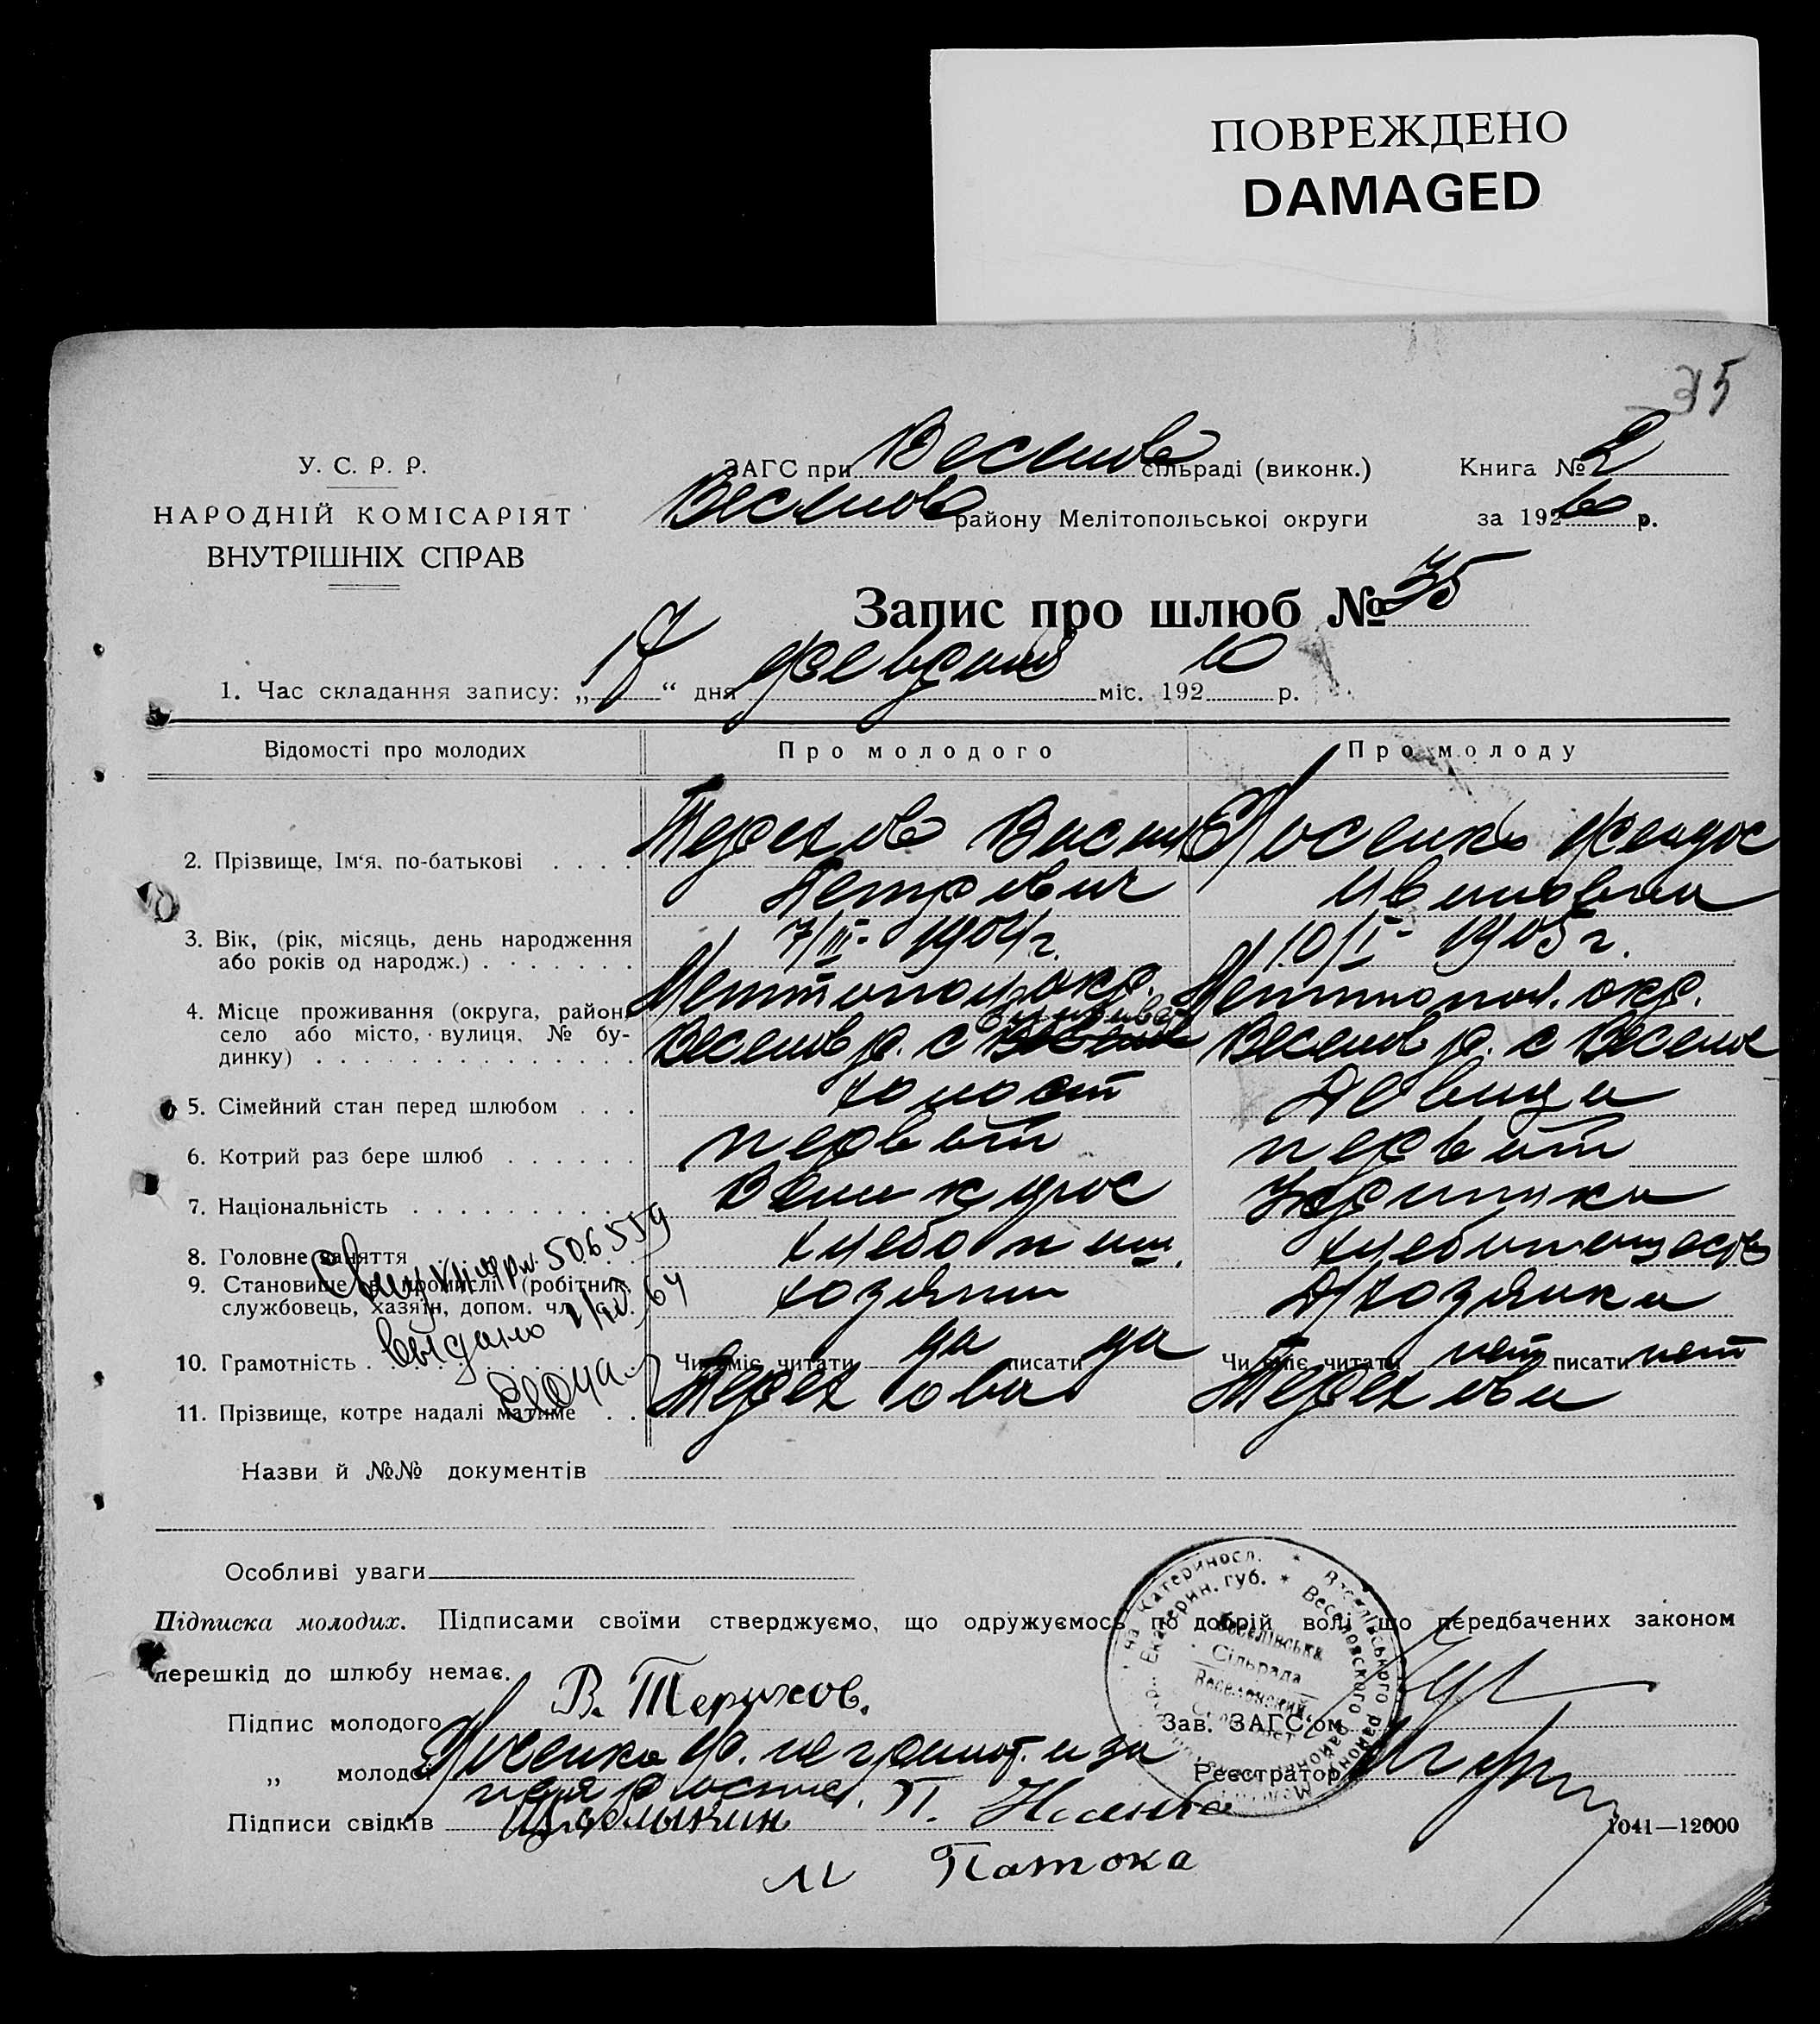 ПОВРЕЖДЕНО
DAMAGED
35
У. С. Р. Р.
НАРОДНІЙ КОМІСАРІЯТ
ВНУТРІШНІХ СПРАВ
ЗАГС при Веселов сільраді (виконк.) Книга № 2
Веселов району Мелітопольської округи за 1926 р.
Запис про шлюб № 35
1. Час складання запису: „17“ дня февраля міс. 1926 р.
Відомості про молодих Про молодого Про молоду
2. Прізвище, Ім‘я, по-батькові Терехов Васил Носенко Феодос
Петрович Ивановна
3. Вік, (рік, місяць, день народження 7/III- 1904 г. 10/I- 1905 г.
або років од народж.)
4. Місце проживання (округа, район, Мелитопол окр. Мелитопол. окр.
село або місто, вулиця, № бу- Веселов р. с Веселов р. с Веселое
динку)
5. Сімейний стан перед шлюбом холост девица
6. Котрий раз бере шлюб первый первый
7. Національність Великорос Украинка
8. Головне заняття хлебопаш. хлебопашество
9. Становище в промислі (робітник, хозяин Д/хозяйка
службовець, хазяїн, допом. чл.
506559
выдано
64
10. Грамотність Чи вміє читати да писати да Чи вміє читати нет писати нет
11. Прізвище, котре надалі матиме Терехова Терехова
Назви й №№ документів
Особливі уваги
Підписка молодих. Підписами своїми стверджуємо, що одружуємось по добрій волі що передбачених законом
перешкід до шлюбу немає.
Підпис молодого В. Терихов.
Зав. ЗАГС‘ом
„ молодої Носенко Ф. не грамот. и за
Реєстратор
нея росписал.
Підписи свідків П.
1041—12000
М Патока
Веселівська
Сільрада
Веселовский